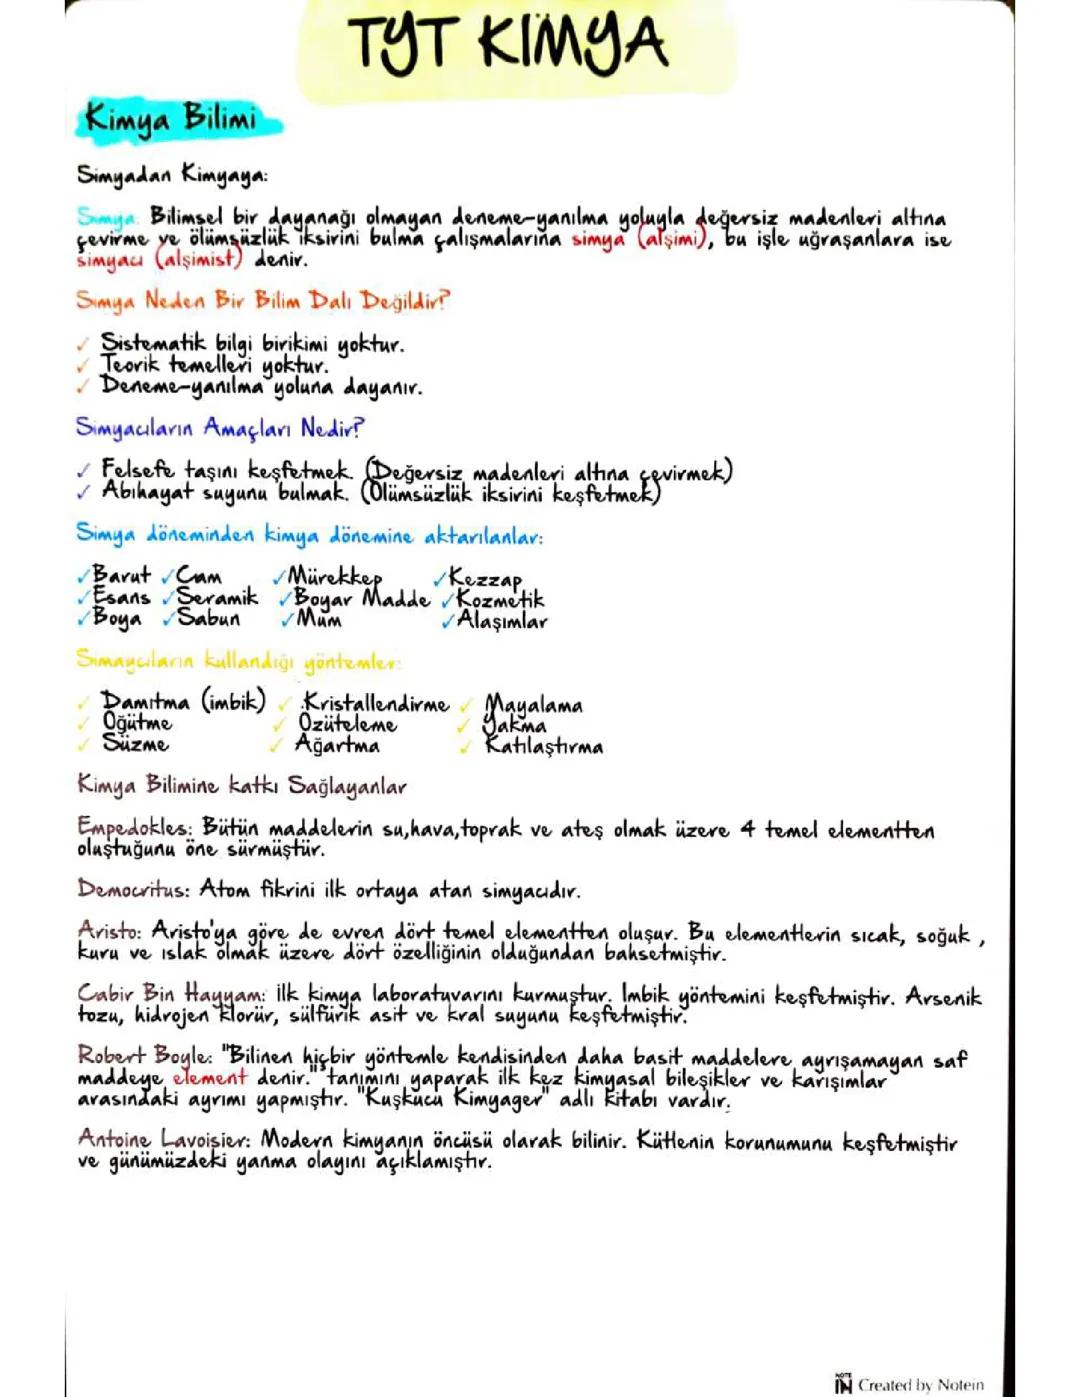 TYT KİMYA
Kimya Bilimi
Simyadan Kimyaya:
Simya: Bilimsel bir dayanağı olmayan deneme-yanılma yoluyla değersiz madenleri altına
çevirme ve ölümsüzlük iksirini bulma çalışmalarına simya (alşimi), bu işle uğraşanlara ise
simyacı (alşimist) denir.
Simya Neden Bir Bilim Dalı Değildir?
✓ Sistematik bilgi birikimi yoktur.
✓ Teorik temelleri yoktur.
✓ Deneme-yanılma yoluna dayanır.
Simyacıların Amaçları Nedir?
✓ Felsefe taşını keşfetmek. (Değersiz madenleri altına çevirmek)
✓ Abıhayat suyunu bulmak. (Ölümsüzlük iksirini keşfetmek)
Simya döneminden kimya dönemine aktarılanlar:
✓Barut ✓Cam ✓Mürekkep ✓Kezzap
✓Esans ✓Seramik ✓Boyar Madde ✓Kozmetik
✓Boya ✓Sabun ✓Mum ✓Alaşımlar
Simaycıların kullandığı yöntemler:
✓ Damıtma (imbik) ✓ Kristallendirme ✓ Mayalama
✓ Öğütme ✓ Özüteleme ✓ Yakma
✓ Süzme ✓ Ağartma ✓ Katılaştırma
Kimya Bilimine katkı Sağlayanlar
Empedokles: Bütün maddelerin su,hava,toprak ve ateş olmak üzere 4 temel elementten
oluştuğunu öne sürmüştür.
Democritus: Atom fikrini ilk ortaya atan simyacıdır.
Aristo: Aristo'ya göre de evren dört temel elementten oluşur. Bu elementlerin sıcak, soğuk ,
kuru ve ıslak olmak üzere dört özelliğinin olduğundan bahsetmiştir.
Cabir Bin Hayyam: İlk kimya laboratuvarını kurmuştur. İmbik yöntemini keşfetmiştir. Arsenik
tozu, hidrojen klorür, sülfürik asit ve kral suyunu keşfetmiştir.
Robert Boyle: "Bilinen hiçbir yöntemle kendisinden daha basit maddelere ayrışamayan saf
maddeye element denir." tanımını yaparak ilk kez kimyasal bileşikler ve karışımlar
arasındaki ayrımı yapmıştır. "Kuşkucu Kimyager" adlı kitabı vardır.
Antoine Lavoisier: Modern kimyanın öncüsü olarak bilinir. Kütlenin korunumunu keşfetmiştir
ve günümüzdeki yanma olayını açıklamıştır.
NOTE IN Created by Notein